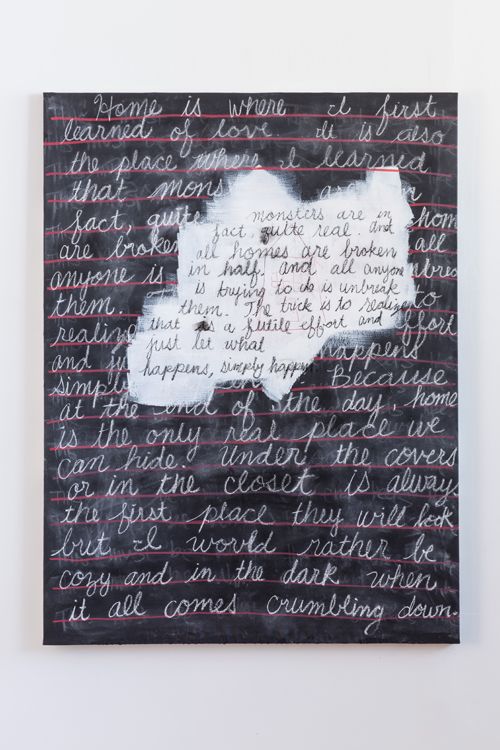 Home is where I first
learned of love. It is also
the place where I learned
that mons
fact, quite
are broken all
anyone is
them. to
realizing effort
and ju happens
simply Because
monsters are in
fact, quite real. and
all homes are broken
in half. and all anyone
is trying to do is unbreak
them. The trick is to realize
that is a futile effort and
just let what
happens, simply happen.
at the end of the day, home
is the only real place we
can hide. Under the covers
or in the closet is always
the first place they will look
but I would rather be
cozy and in the dark when
it all comes crumbling down.